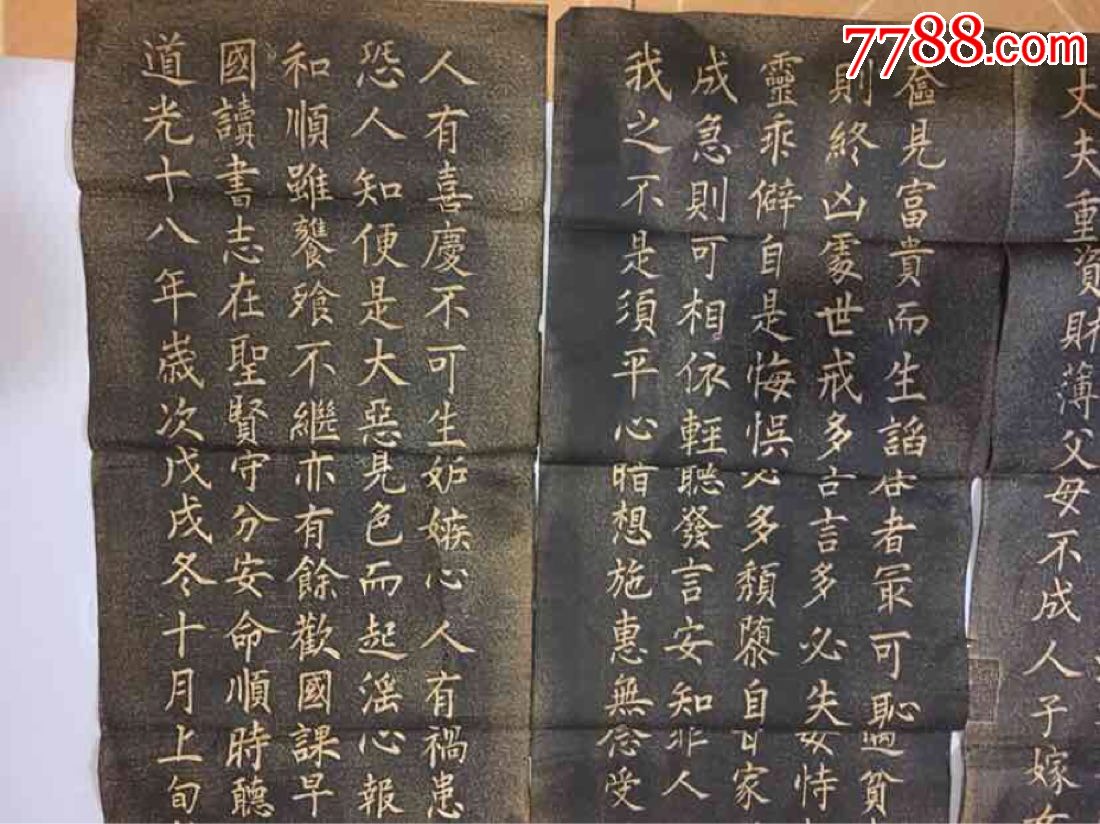 7788.com
丈夫重資財薄父母不成人子嫁女
奩見富貴而生諂容者冣可恥遇貧
則終凶處世戒多言言多必失毋恃
靈乖僻自是悔悞必多頹隳自甘家
成急則可相依輕聽發言安知非人
我之不是須平心暗想施惠無念受
人有喜慶不可生妬嫉心人有禍患
恐人知便是大惡見色而起淫心報
和順雖饔飧不繼亦有餘歡國課早
國讀書志在聖賢守分安命順時聽
道光十八年歲次戊戌冬十月上旬